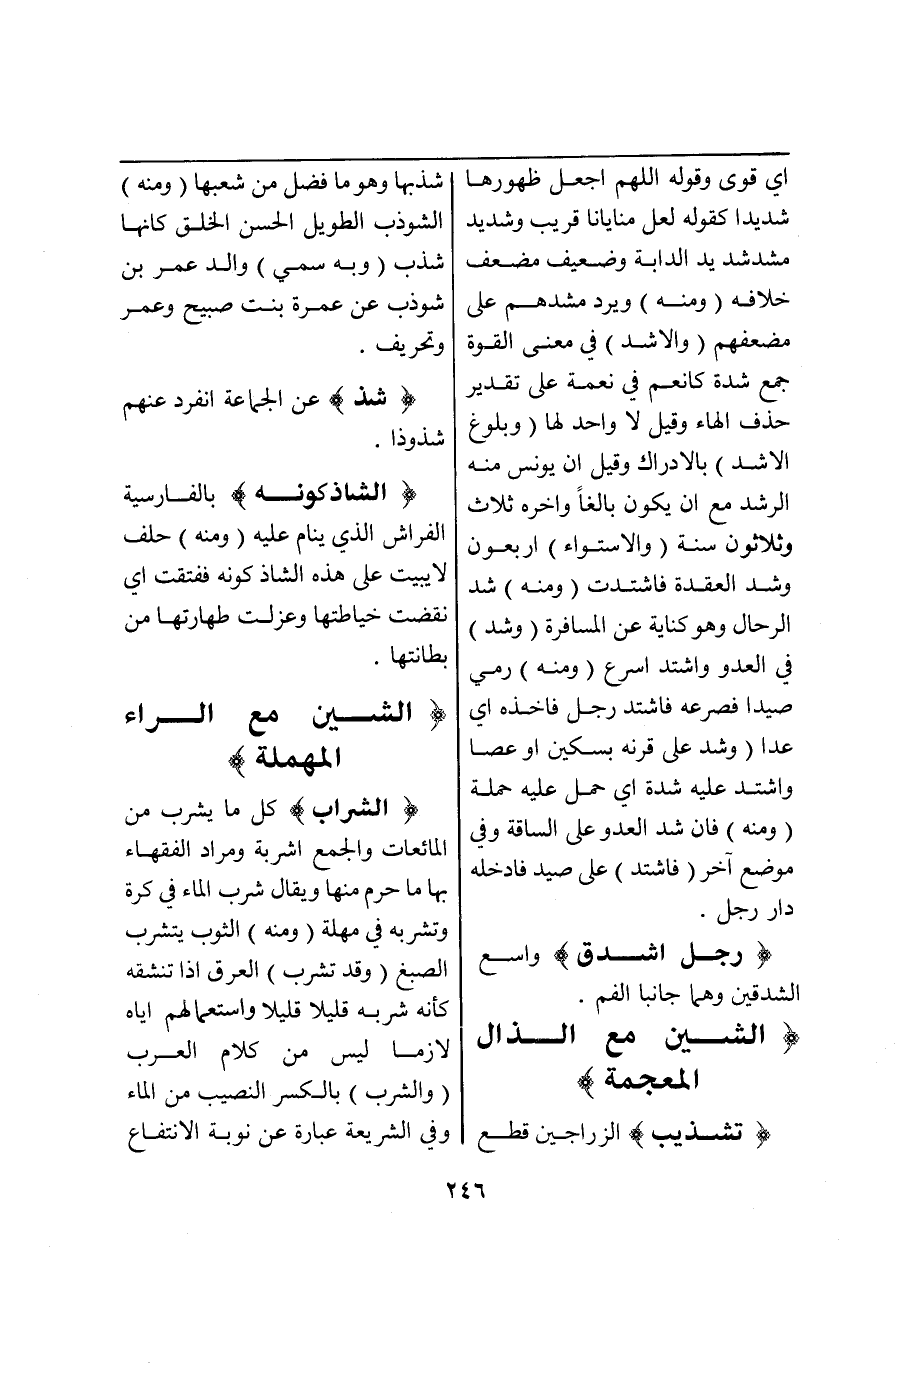 اي قوى وقوله اللهم اجعل ظهورها
شديدا كقوله لعل منايانا قريب وشديد
مشدشد يد الدابة وضعيف مضعف
خلافه ( ومنه ) ويرد مشدهم على
مضعفهم ( والاشد ) في معنى القوة
جمع شدة كانعم في نعمة على تقدير
حذف الهاء وقيل لا واحد لها ( وبلوغ
الاشد ) بالادراك وقيل ان يونس منه
الرشد مع ان يكون بالغاً واخره ثلاث
وثلاثون سنة ( والاستواء ) اربعون
وشد العقدة فاشتدت ( ومنه ) شد
الرحال وهو كناية عن المسافرة ( وشد )
في العدو واشتد اسرع ( ومنه ) رمي
صيدا فصرعه فاشتد رجل فاخذه اي
عدا ( وشد على قرنه بسكين او عصا
واشتد عليه شدة اي حمل عليه حملة
( ومنه ) فان شد العدو على الساقة وفي
موضع آخر ( فاشتد ) على صيد فادخله
دار رجل .
﴿ رجل اشدق ﴾ واسع
الشدقين وهما جانبا الفم .
﴿ الشين مع الذال
المعجمة ﴾
﴿ تشذيب ﴾ الزراجين قطع
شذبها وهو ما فضل من شعبها ( ومنه )
الشوذب الطويل الحسن الخلق كانها
شذب ( وبه سمي ) والد عمر بن
شوذب عن عمرة بنت صبيح وعمر
وتحريف .
﴿ شذ ﴾ عن الجماعة انفرد عنهم
شذوذا .
﴿ الشاذكونه ﴾ بالفارسية
الفراش الذي ينام عليه ( ومنه ) حلف
لايبيت على هذه الشاذ كونه ففتقت اي
نقضت خياطتها وعزلت ظهارتها من
بطانتها .
﴿ الشين مع الراء
المهملة ﴾
﴿ الشراب ﴾ كل ما يشرب من
المائعات والجمع اشربة ومراد الفقهاء
بها ما حرم منها ويقال شرب الماء في كرة
وتشربه في مهلة ( ومنه ) الثوب يتشرب
الصبغ ( وقد تشرب ) العرق اذا تنشفه
كأنه شربه قليلا قليلا واستعمالهم اياه
لازما ليس من كلام العرب
( والشرب ) بالكسر النصيب من الماء
وفي الشريعة عبارة عن نوبة الانتفاع
٢٤٦